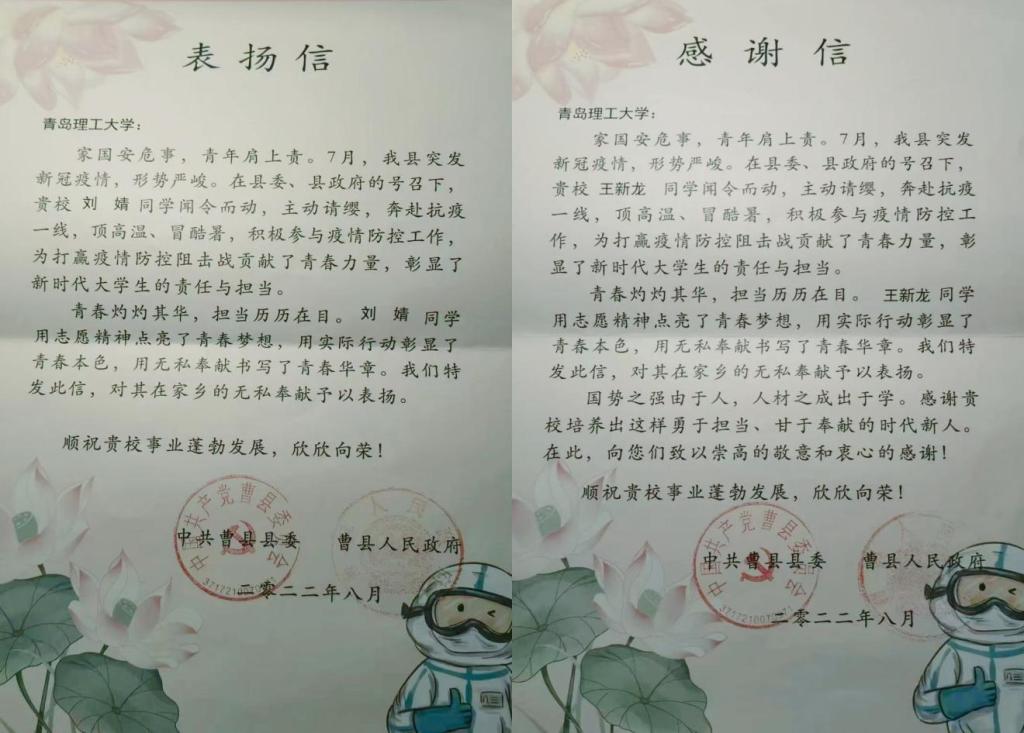 表扬信
青岛理工大学：
家国安危事，青年肩上责。7月，我县突发
新冠疫情，形势严峻。在县委、县政府的号召下，
贵校 刘 婧 同学闻令而动，主动请缨，奔赴抗疫
一线，顶高温、冒酷暑，积极参与疫情防控工作，
为打赢疫情防控阻击战贡献了青春力量，彰显了
新时代大学生的责任与担当。
青春灼灼其华，担当历历在目。 刘 婧 同学
用志愿精神点亮了青春梦想，用实际行动彰显了
青春本色，用无私奉献书写了青春华章。我们特
发此信，对其在家乡的无私奉献予以表扬。
顺祝贵校事业蓬勃发展，欣欣向荣！
中国共产党曹县委员会
中共曹县县委 曹县人民政府
二零二二年八月
感谢信
青岛理工大学：
家国安危事，青年肩上责。7月，我县突发
新冠疫情，形势严峻。在县委、县政府的号召下，
贵校 王新龙 同学闻令而动，主动请缨，奔赴抗疫
一线，顶高温、冒酷暑，积极参与疫情防控工
作，为打赢疫情防控阻击战贡献了青春力量，彰
显了新时代大学生的责任与担当。
青春灼灼其华，担当历历在目。 王新龙 同学
用志愿精神点亮了青春梦想，用实际行动彰显了
青春本色，用无私奉献书写了青春华章。我们特
发此信，对其在家乡的无私奉献予以表扬。
国势之强由于人，人材之成出于学。感谢贵
校培养出这样勇于担当、甘于奉献的时代新人。
在此，向您们致以崇高的敬意和衷心的感谢！
顺祝贵校事业蓬勃发展，欣欣向荣！
中国共产党曹县委员会
中共曹县县委 曹县人民政府
二零二二年八月